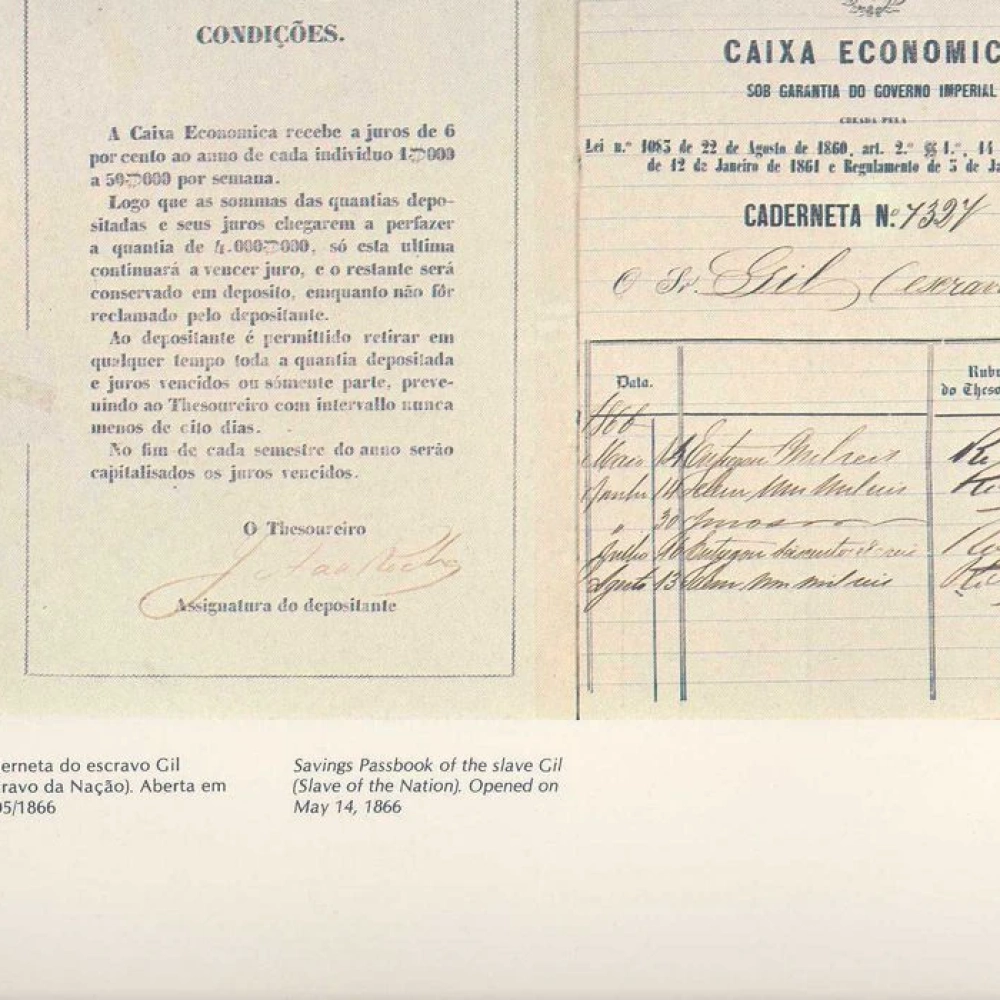 CONDIÇÕES.
A Caixa Economica recebe a juros de 6
por cento ao anno de cada individuo 1$000
a 50$000 por semana.
Logo que as sommas das quantias depo-
sitadas e seus juros chegarem a perfazer
a quantia de 4.000$000, só esta ultima
continuará a vencer juro, e o restante será
conservado em deposito, emquanto não fôr
reclamado pelo depositante.
Ao depositante é permittido retirar em
qualquer tempo toda a quantia depositada
e juros vencidos ou sómente parte, preve-
nindo ao Thesoureiro com intervallo nunca
menos de oito dias.
No fim de cada semestre do anno serão
capitalisados os juros vencidos.
O Thesoureiro
Assignatura do depositante
CAIXA ECONOMIC
SOB GARANTIA DO GOVERNO IMPERIAL
CREADA PELA
Lei n.º 1083 de 22 de Agosto de 1860, art. 2.º §§ 1.º, 14
de 12 de Janeiro de 1861 e Regulamento de 5 de Ja
CADERNETA N.º 7327
O Sr. Gil (escrav
Data.
Rub
do Theso
1866
Maio 14 Entregou mil reis
Junho 14 Idem um mil reis
" 30
Julho 16 Entregou
Agosto 13 Idem um mil reis
erneta do escravo Gil
ravo da Nação). Aberta em
05/1866
Savings Passbook of the slave Gil
(Slave of the Nation). Opened on
May 14, 1866